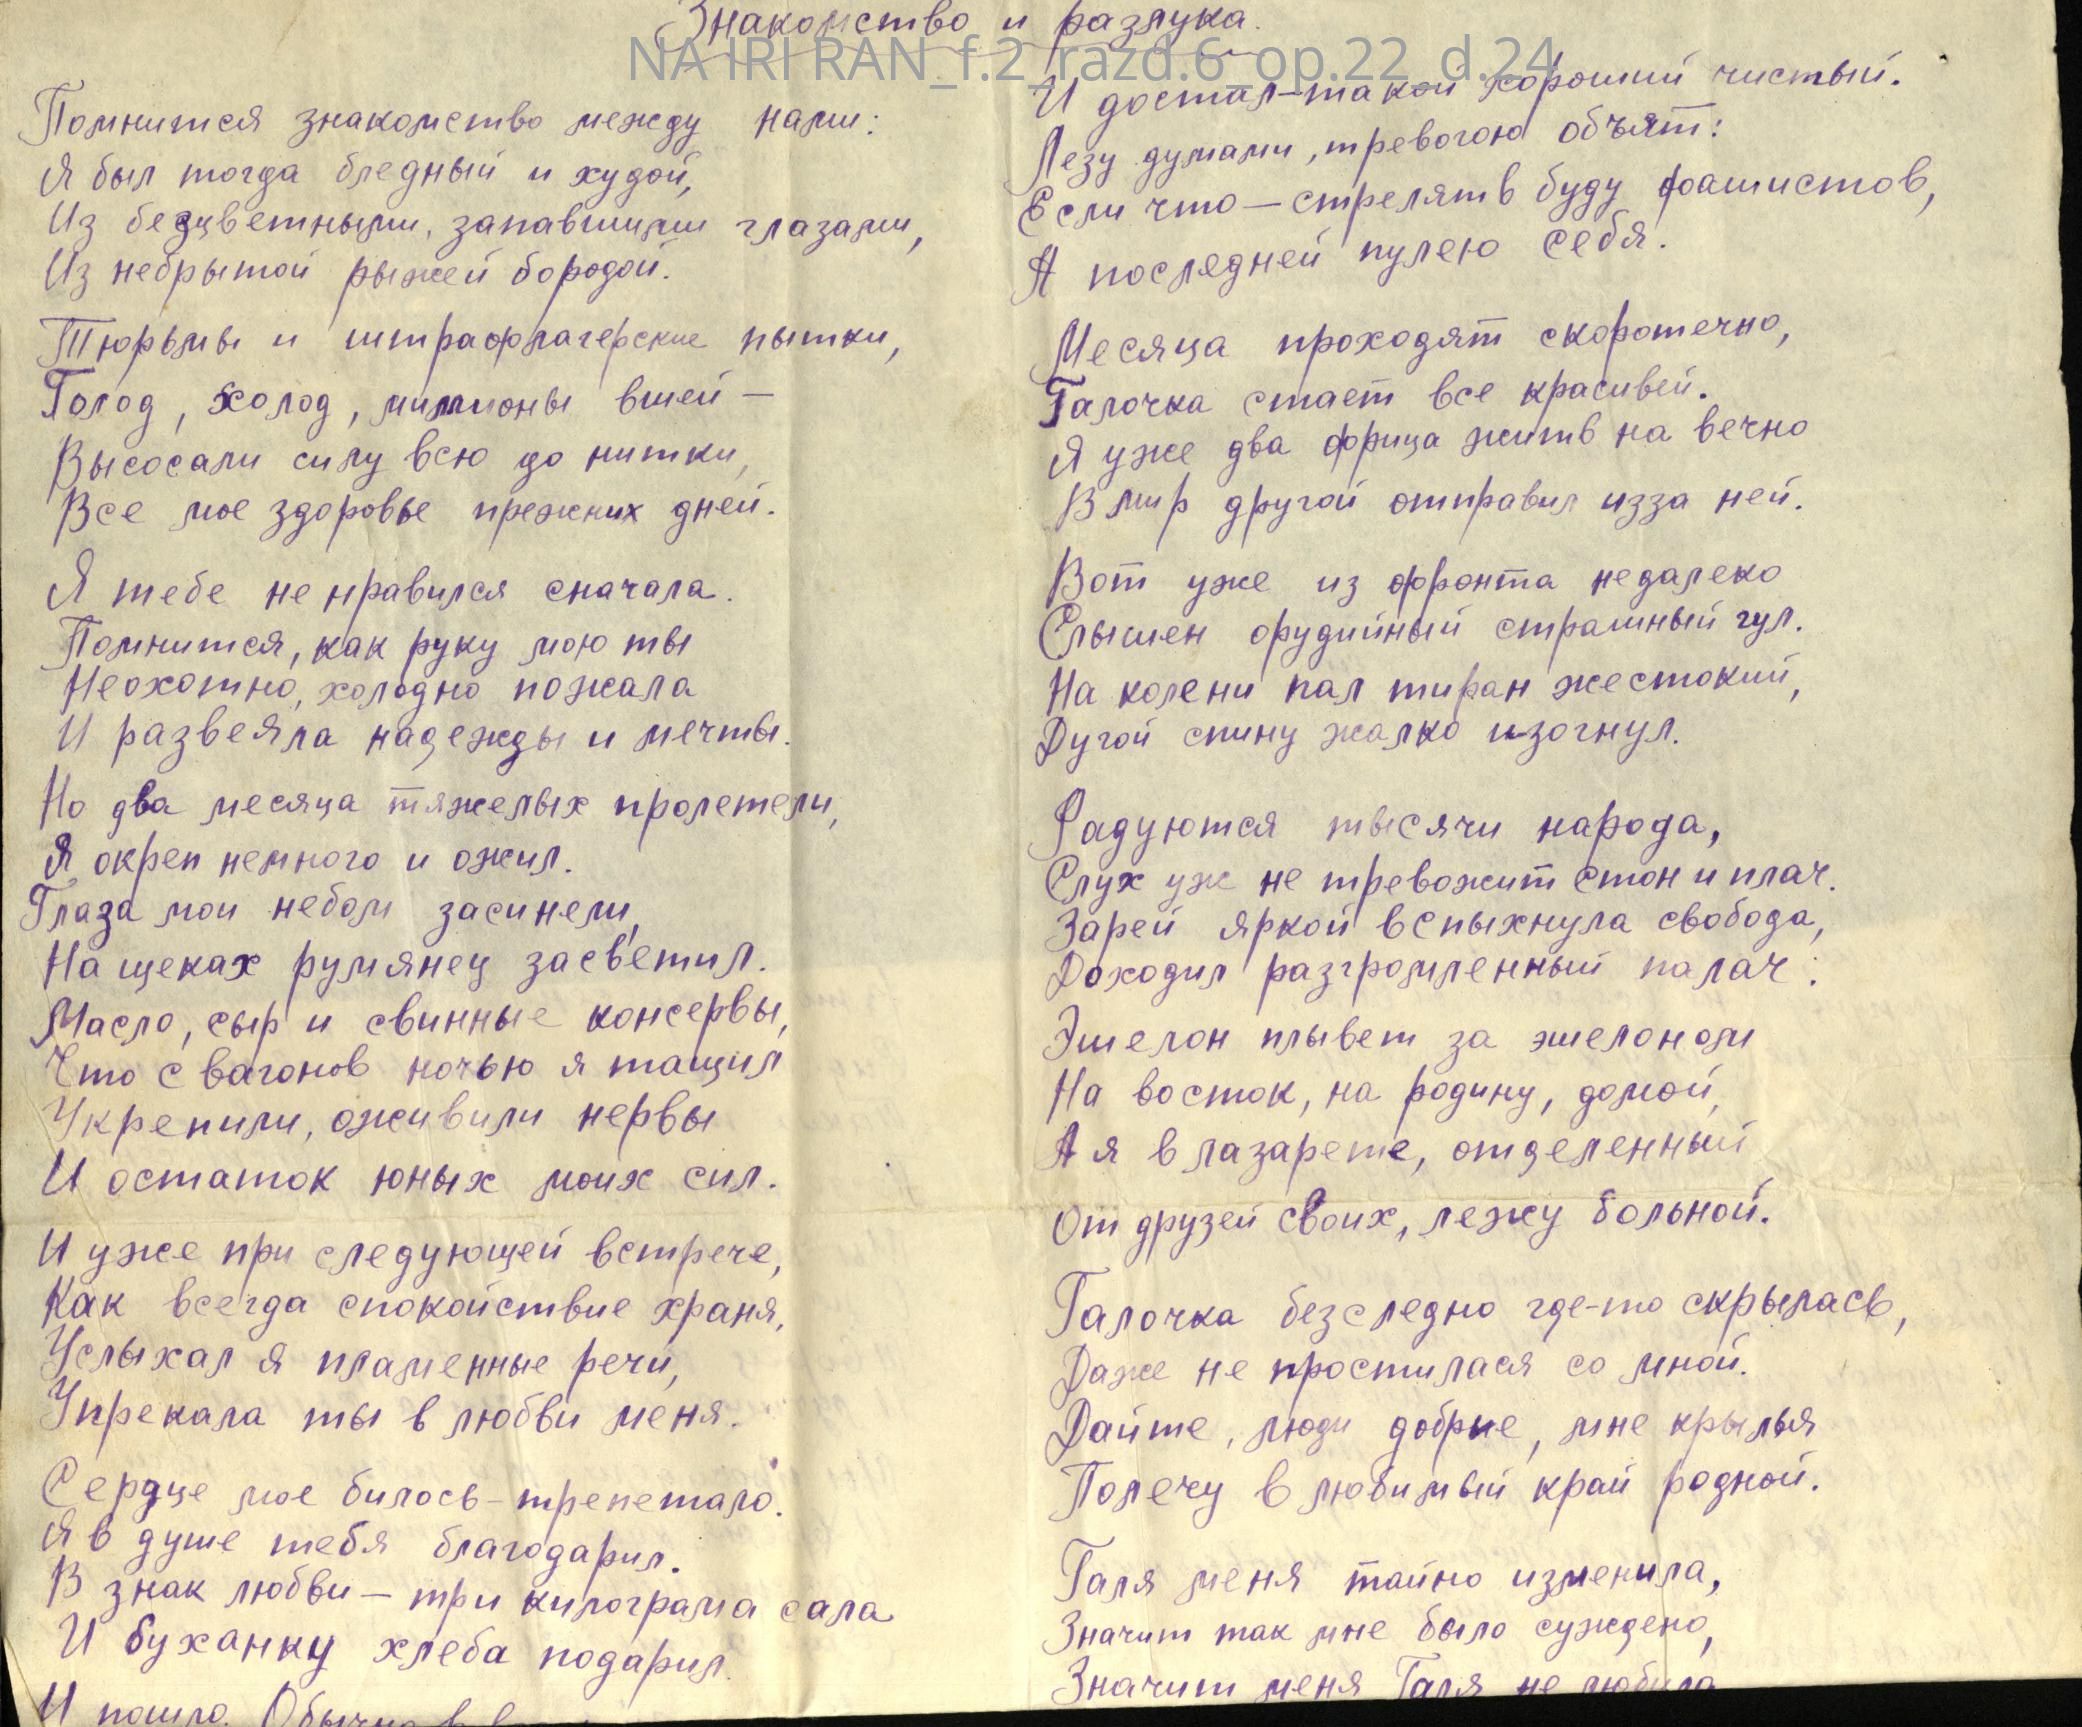 Знакомство и разлука.
NA IRI RAN_f.2_razd.6_op.22_d.24
Помнится знакомство между нами:
Я был тогда бледный и худой,
Из безцветными, запавшими глазами,
Из небрытой рыжей бородой.
Тюрьмы и штрафлагерские пытки,
Голод, холод, миллионы вшей —
Высосали силу всю до нитки,
Все мое здоровье прежних дней.
Я тебе не нравился сначала.
Помнится, как руку мою ты
Неохотно, холодно пожала
И развеяла надежды и мечты.
Но два месяца тяжелых пролетели,
Я окреп немного и ожил.
Глаза мои небом засинели,
На щеках румянец засветил.
Масло, сыр и свинные консервы,
Что с вагонов ночью я тащил
Укрепили, оживили нервы
И остаток юных моих сил.
И уже при следующей встрече,
Как всегда спокойствие храня,
Услыхал я пламенные речи,
Упрекала ты в любви меня.
Сердце мое билось – трепетало.
Я в душе тебя благодарил.
В знак любви – три килограма сала
И буханку хлеба подарил.
И пошло. Обычно в
И достал-такой хороший чистый.
Лезу думами, тревогою объят:
Если что — стрелять буду фашистов,
А последней пулею себя.
Месяца проходят скоротечно,
Галочка стает все красивей.
Я уже два фрица жить на вечно
В мир другой отправил изза ней.
Вот уже из фронта недалеко
Слышен орудийный страшный гул.
На колени пал тиран жестокий,
Дугой спину жалко изогнул.
Радуются тысячи народа,
Слух уж не тревожит стон и плач.
Зарей яркой вспыхнула свобода,
Доходил разгромленный палач:
Эшелон плывет за эшелоном
На восток, на родину, домой,
А я в лазарете, отделенный
От друзей своих, лежу больной.
Галочка безследно где-то скрылась,
Даже не простилася со мной.
Дайте, люди добрые, мне крылья
Полечу в любимый край родной.
Галя меня тайно изменила,
Значит так мне было суждено,
Значит меня Галя не любила